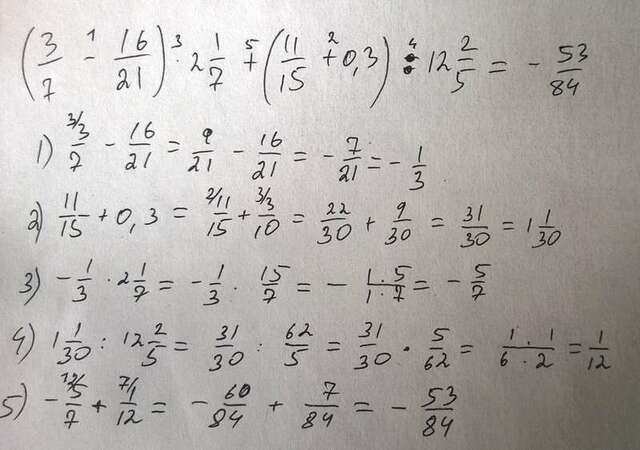 (3/7 - 16/21) · 2 1/7 + (11/15 + 0,3) : 12 2/5 = - 53/84
1) 3/7 - 16/21 = 9/21 - 16/21 = - 7/21 = - 1/3
2) 11/15 + 0,3 = 11/15 + 3/10 = 22/30 + 9/30 = 31/30 = 1 1/30
3) - 1/3 · 2 1/7 = - 1/3 · 15/7 = - 1·5/1·7 = - 5/7
4) 1 1/30 : 12 2/5 = 31/30 : 62/5 = 31/30 · 5/62 = 1·1/6·2 = 1/12
5) - 5/7 + 1/12 = - 60/84 + 7/84 = - 53/84